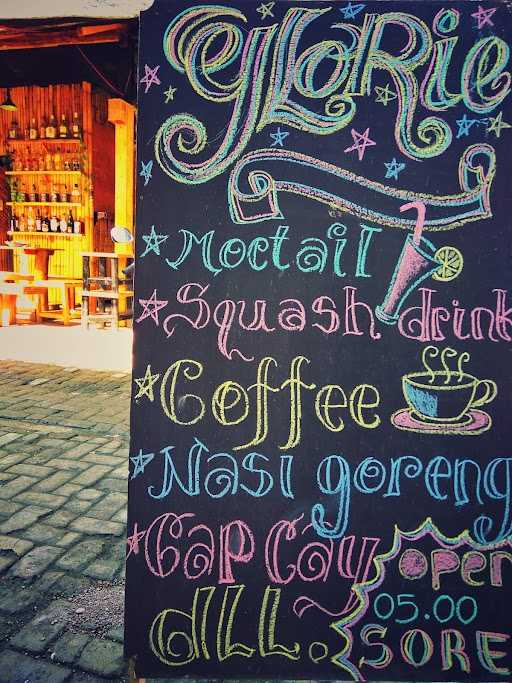 GLORiE
Moctail
Squash drink
Coffee
Nasi goreng
Cap Cay
dLL.
open
05.00
SORE